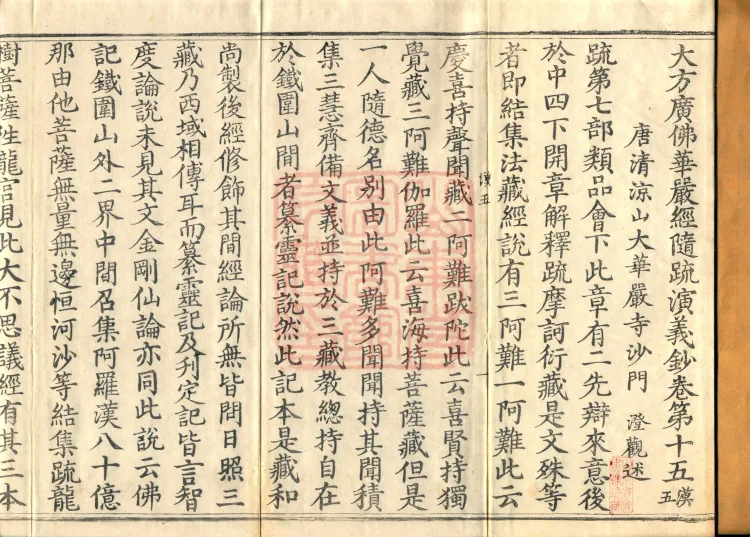 大方廣佛華嚴經隨疏演義鈔卷第十五 漠五
唐清涼山大華嚴寺沙門 澄觀述
疏第七部類品會下此章有二先辯來意後
於中四下開章解釋疏摩訶衍藏是文殊等
者即結集法藏經說有三阿難一阿難此云
慶喜持聲聞藏二阿難跋陀此云喜賢持獨
覺藏三阿難伽羅此云喜海持菩薩藏但是
一人隨德名別由此阿難多聞聞持其聞積
集三慧齊備文義並持於三藏教總持自在
於鐵圍山間者纂靈記說然此記本是藏和
尚製後經修飾其間經論所無皆問日照三
藏乃西域相傳耳而纂靈記及刊定記皆言智
度論說未見其文金剛仙論亦同此說云佛
記鐵圍山外二界中間召集阿羅漢八十億
那由他菩薩無量無邊恒河沙等結集疏龍
樹菩薩往龍宮見此大不思議經有其三本